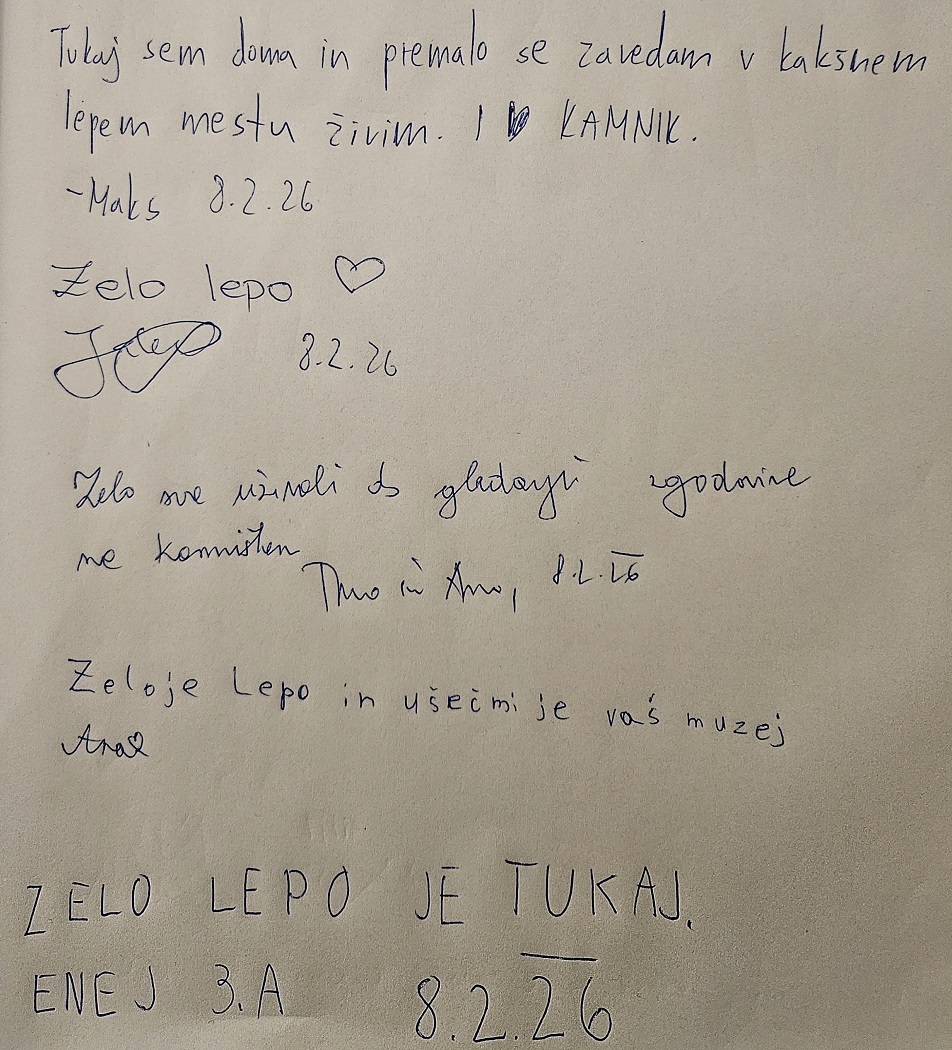 Tukaj sem doma in premalo se zavedam v kakšnem
lepem mestu živim. I ♥ KAMNIK.
-Maks 8.2.26
Zelo lepo ♡
8.2.26
Zelo sve uživali ob gledanji zgodovine
na
in 8.2.26
Zeloje Lepo in ušečmi je vaš muzej
Ana♡
ZELO LEPO JE TUKAJ.
ENEJ 3.A 8.2.26